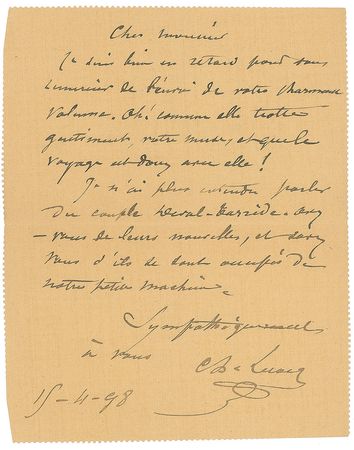 Cher Monsieur
Je suis bien en retard pour vous
remercier de l'envoi de votre charmant
volume. Oh! comme elle trotte
gentiment, votre muse, et que le
voyage est doux avec elle!
Je n'ai plus entendu parler
du couple Deval-Tarride. Avez
-vous de leurs nouvelles, et savez
vous s'ils se sont occupés de
notre petite machine.
Sympathiquement
à vous
Ch. Lecocq
15-4-98